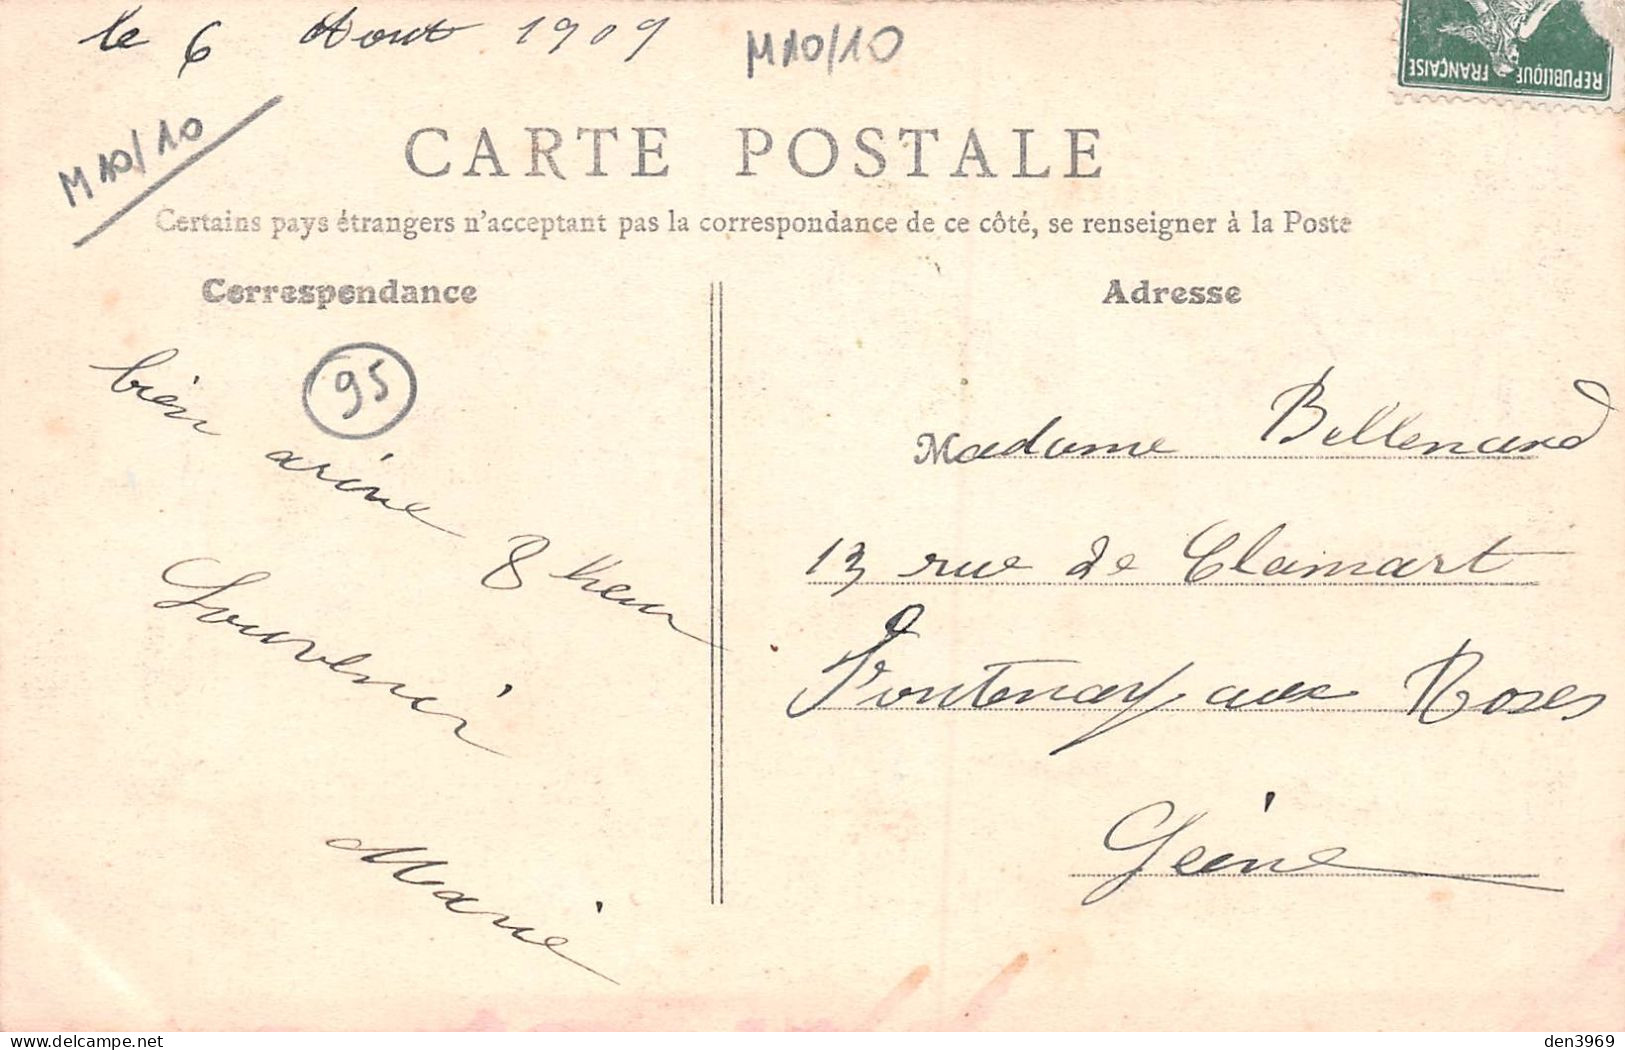 le 6 Aout 1909
M10/10
REPUBLIQUE FRANÇAISE
M10/10
CARTE POSTALE
Certains pays étrangers n'acceptant pas la correspondance de ce côté, se renseigner à la Poste
Correspondance
95
bien arivé
8 heur
Souvenir
Marie
Adresse
Madame Bellenard
13 rue de Clamart
Fontenay aux Roses
Seine
den3969